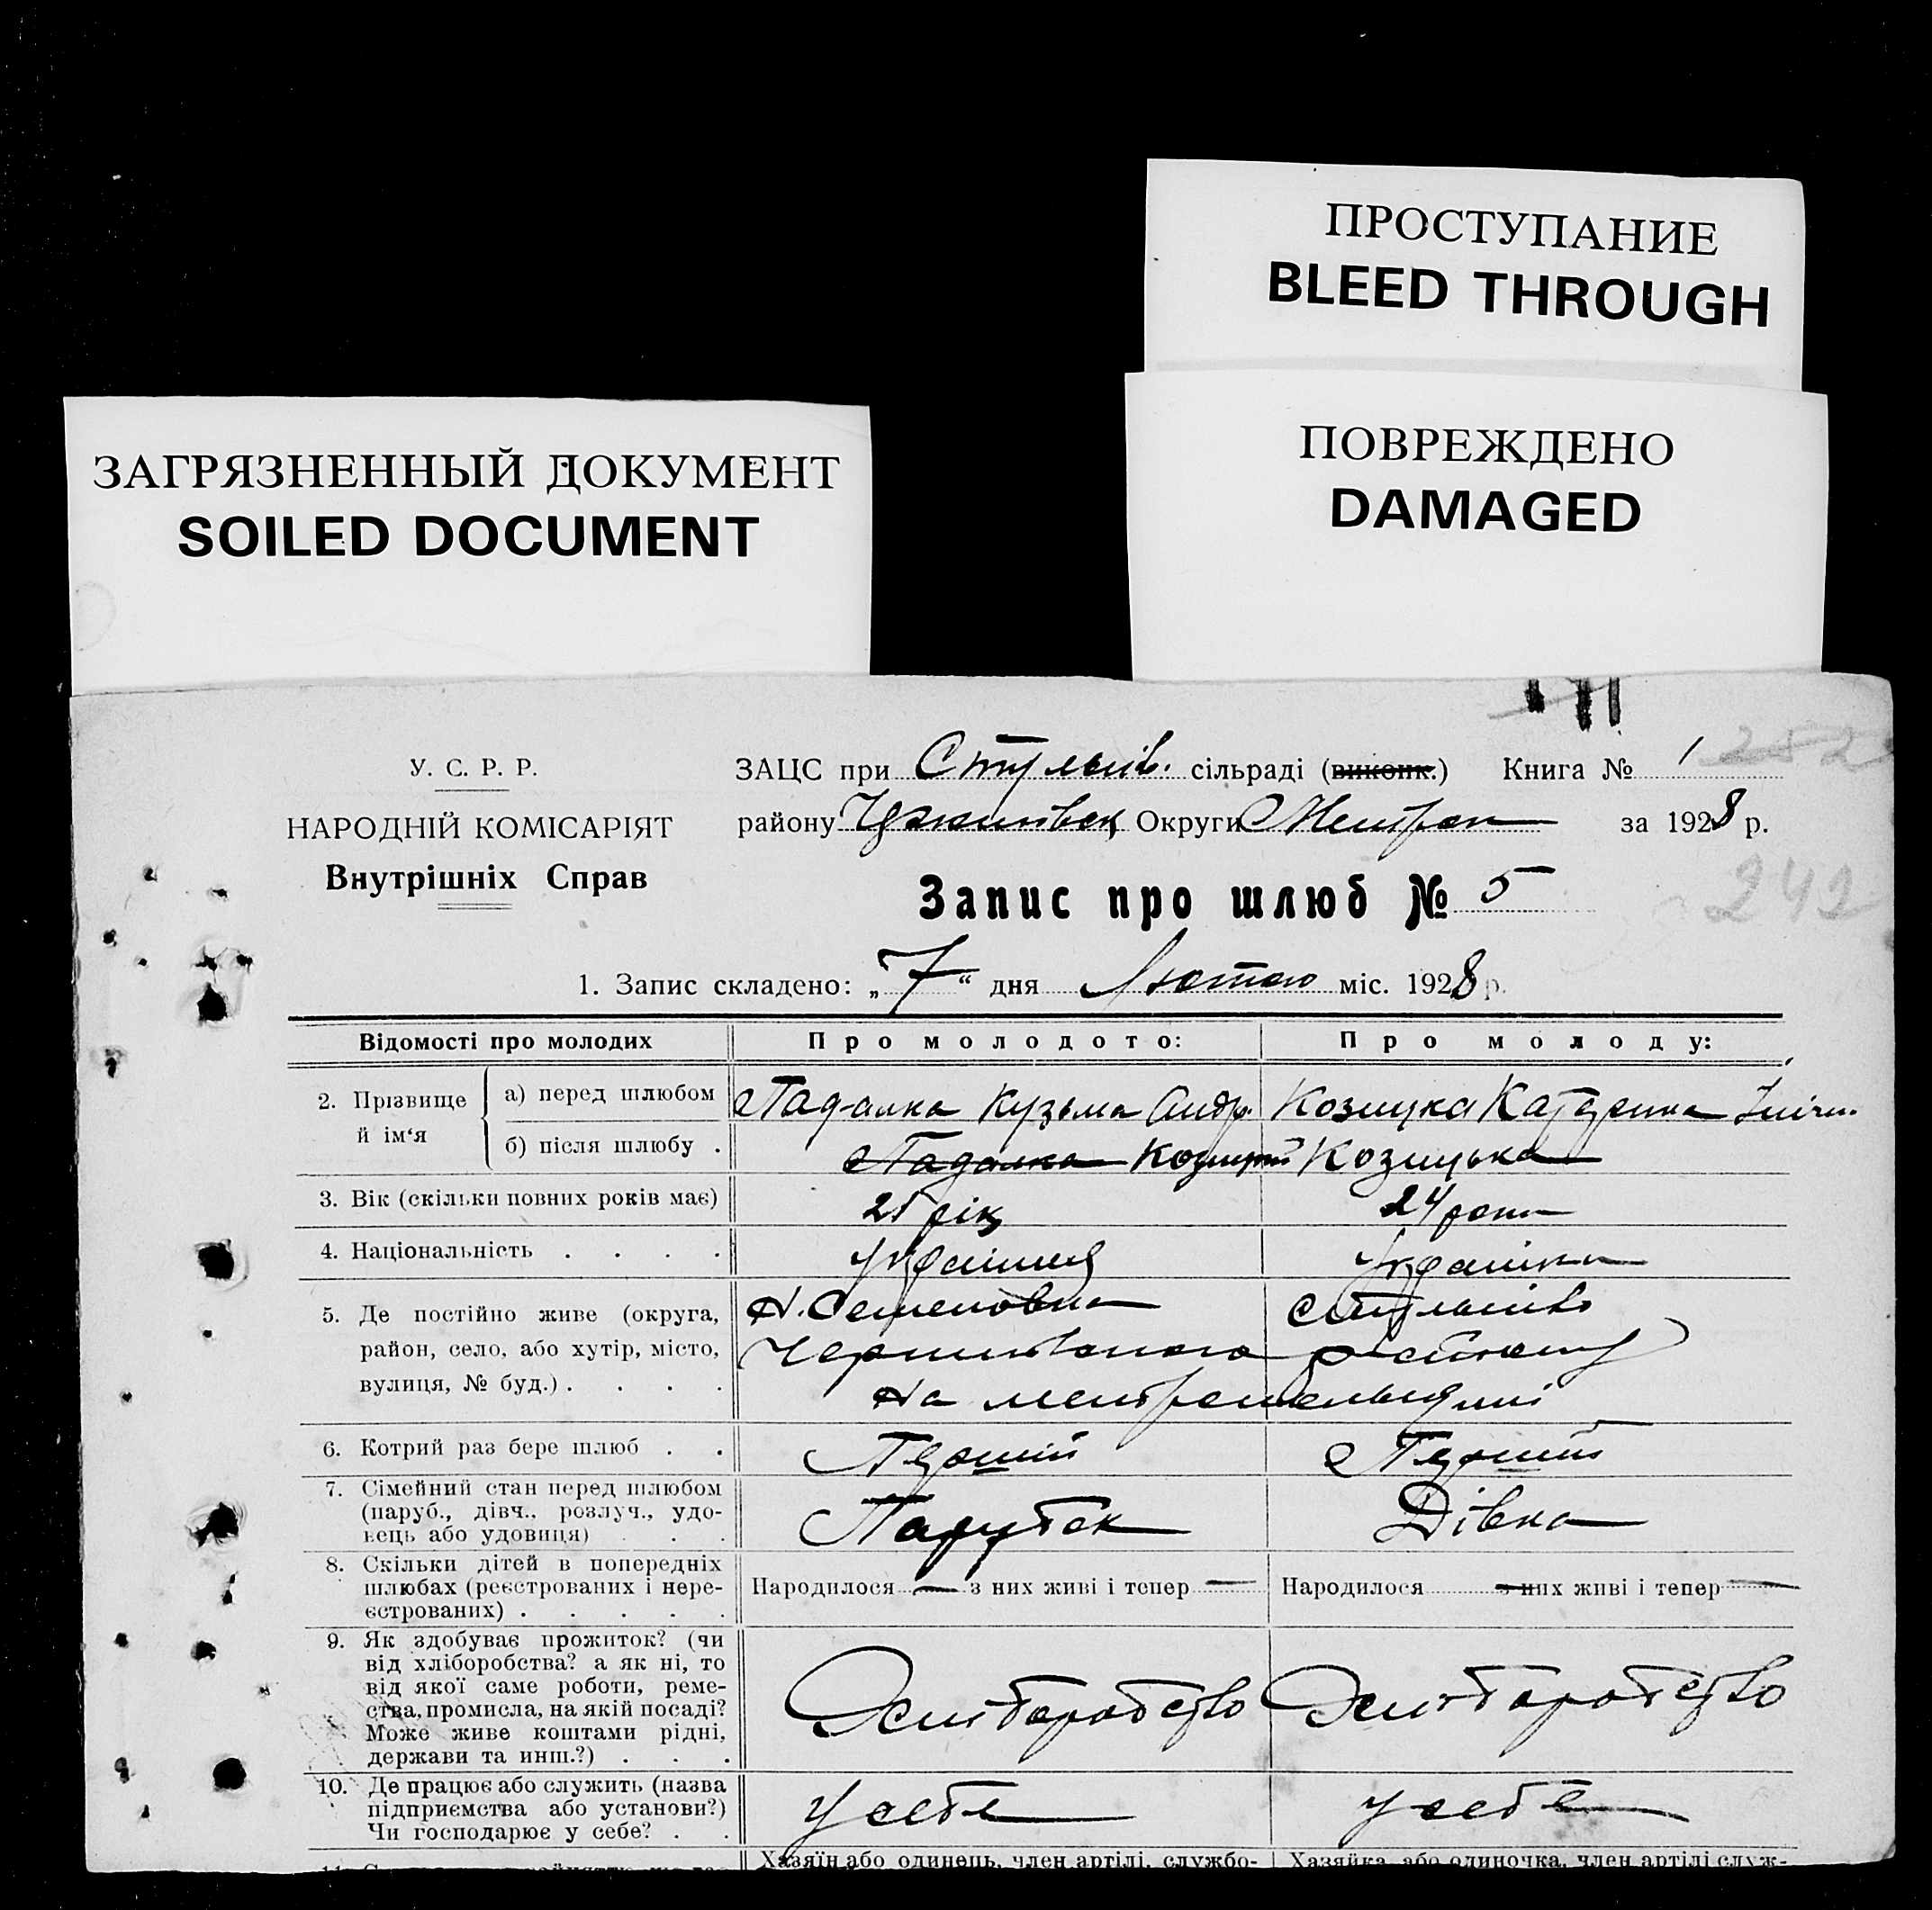 ПРОСТУПАНИЕ
BLEED THROUGH
ЗАГРЯЗНЕННЫЙ ДОКУМЕНТ
SOILED DOCUMENT
ПОВРЕЖДЕНО
DAMAGED
У. С. Р. Р.
НАРОДНІЙ КОМІСАРІЯТ
Внутрішніх Справ
ЗАЦС при сільраді (виконк.) Книга № 1
району Округи за 1928 р.
242
Запис про шлюб № 5
1. Запис складено: „7“ дня Лютого міс. 1928 р.
Відомості про молодих Про молодого: Про молоду:
2. Прізвище й ім‘я
а) перед шлюбом Падалка Кузьма Андр. Козицка Катерина
б) після шлюбу . Падалка Козицкий Козицька
3. Вік (скільки повних років має) 21 рік 24 роки
4. Національність . . . . Українец Українка
5. Де постійно живе (округа, Н. Семеновка
район, село, або хутір, місто, району
вулиця, № буд.) . . . . на
6. Котрий раз бере шлюб . . Перший Перший
7. Сімейний стан перед шлюбом
(паруб., дівч., розлуч., удо-
вець або удовиця) . . Парубок Дівка
8. Скільки дітей в попередніх
шлюбах (реєстрованих і нере-
єстрованих) . . . . .
Народилося — з них живі і тепер — Народилося — з них живі і тепер —
9. Як здобуває прожиток? (чи
від хліборобства? а як ні, то
від якої саме роботи, реме-
ства, промисла, на якій посаді?
Може живе коштами рідні,
держави та инш.?) . . .
Хліборобство Хліборобство
10. Де працює або служить (назва
підприємства або установи?)
Чи господарює у себе? . .
У себе У себе
Хазяїн або одинець, член артілі, службо- Хазяйка або одиночка, член артілі служ-